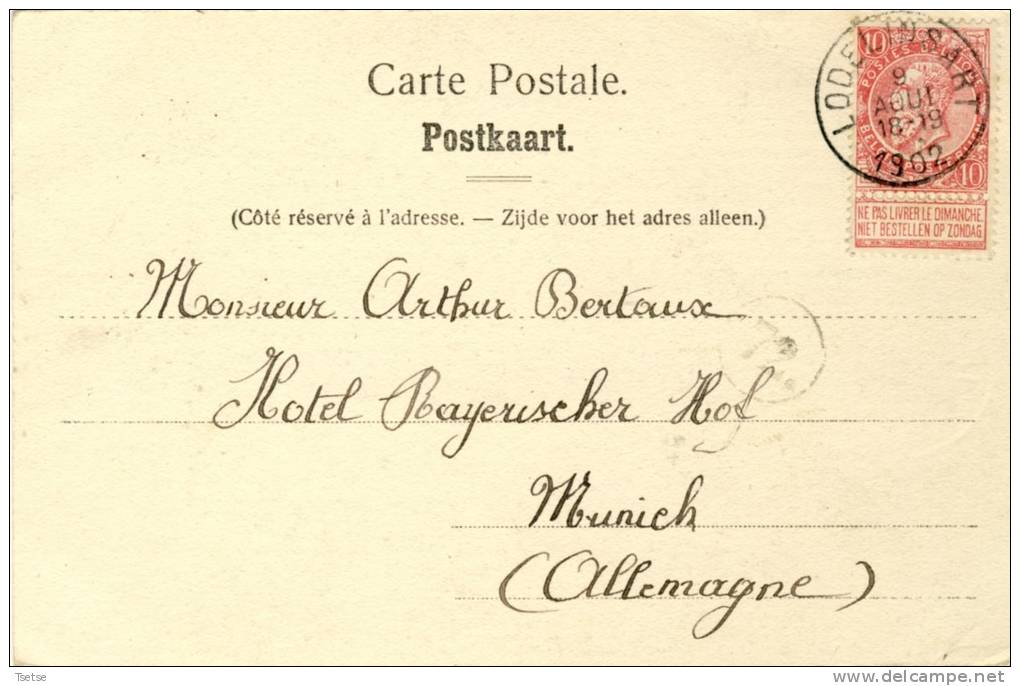 Carte Postale.
Postkaart.
(Côté réservé à l'adresse. — Zijde voor het adres alleen.)
LODELINSART
9
AOUT
18-19
1902
10 10
POSTES
10
NE PAS LIVRER LE DIMANCHE
NIET BESTELLEN OP ZONDAG
Monsieur Arthur Bertaux
Hotel Bayerischer Hof
Munich
(Allemagne)
Tsetse
delcampe.net